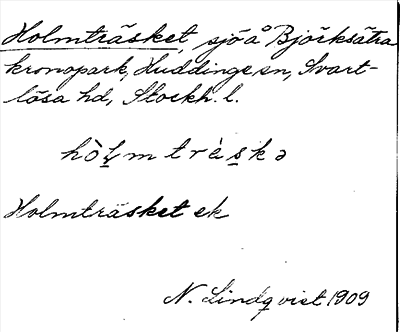 Holmträsket, sjö å Björksätra
kronopark, Huddinge sn, Svart-
lösa hd, Stockh. l.
hòl̬mtrès̬kə
Holmträsket ek
N. Lindqvist 1909